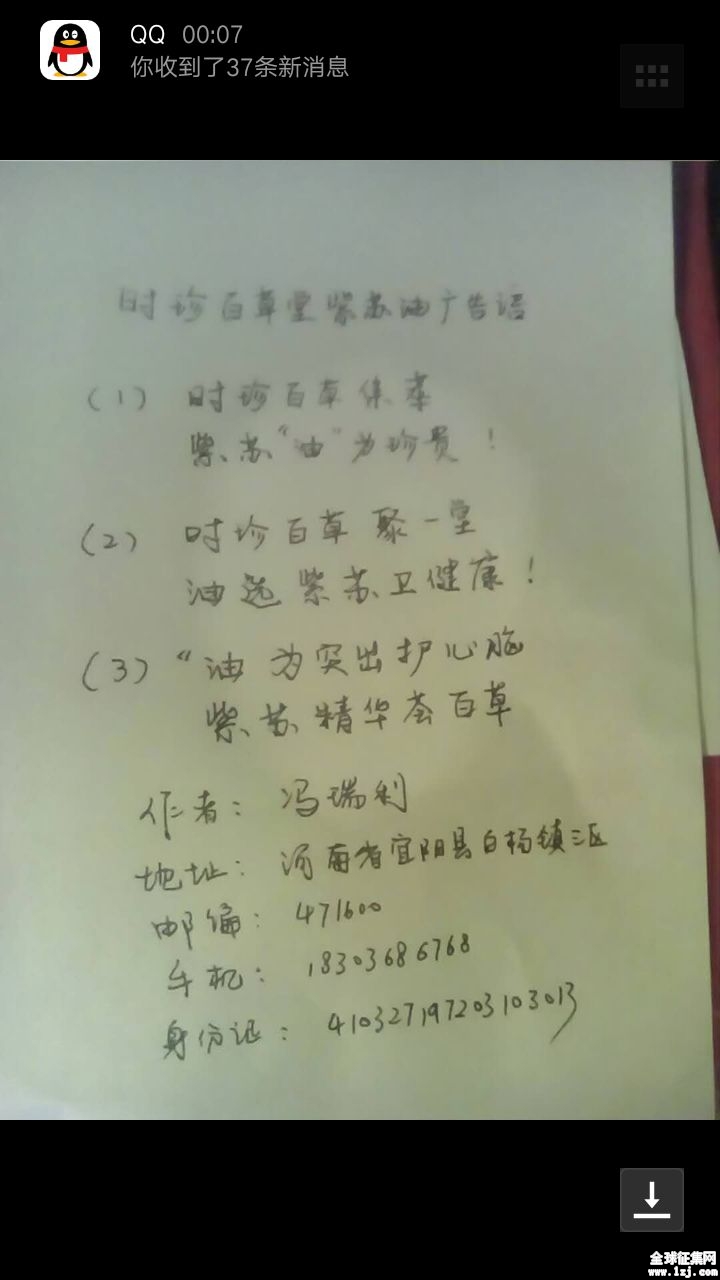 QQ 00:07
你收到了37条新消息
时珍百草堂紫苏油广告语
(1) 时珍百草集萃
紫苏“油”为珍贵!
(2) 时珍百草聚一堂
油选紫苏卫健康!
(3) “油为突出护心脑
紫苏精华荟百草
作者: 冯瑞利
地址: 河南省宜阳县白杨镇三区
邮编: 471600
手机: 18303686768
身份证: 410327197203103013
全球征集网
www.1zj.com